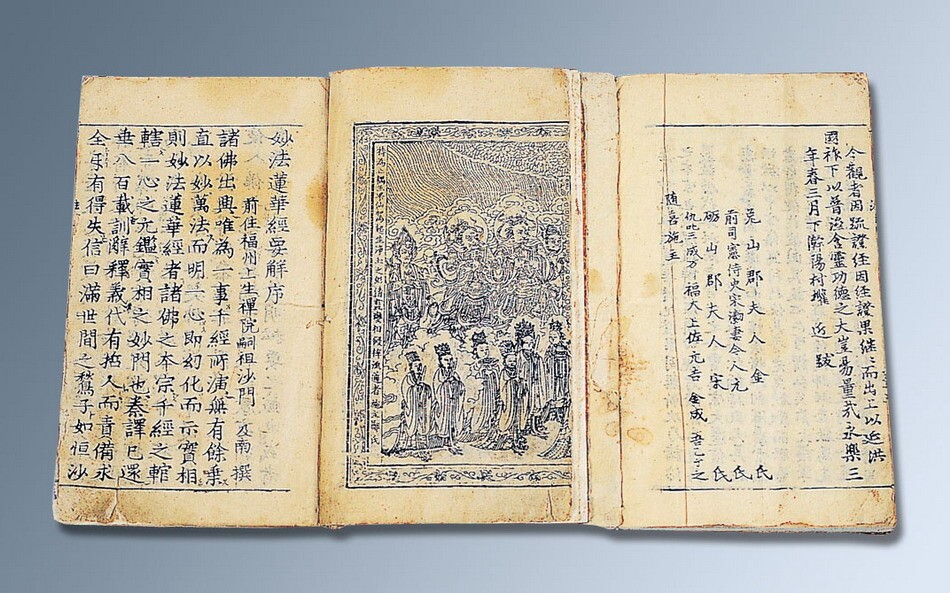 今觀者因疏證經因經證果継〻而出上以延洪
國祚下以普洽含靈功德之大豈易量哉永樂三
年春三月下澣陽村權 近 跋
山郡夫人金氏
前司憲侍史宋渤妻令人元氏
礪山郡夫人宋氏
仇叱三成万 福大上佐元吉 金成 吾乙于之
隨喜施主
妙法蓮華經要解序
前住福州上生禪院嗣祖沙門 及南 撰
諸佛出興唯為一事千經所演無有餘乗
直以妙萬法而明一心即幻化而示實相
則妙法蓮華經者諸佛之本宗千經之輨
轄一心之元鑑實相之妙門也秦譯已還
垂八百載訓辭釋義代有哲人而責備求
全互有得失信曰滿世間之鶖子如恒沙